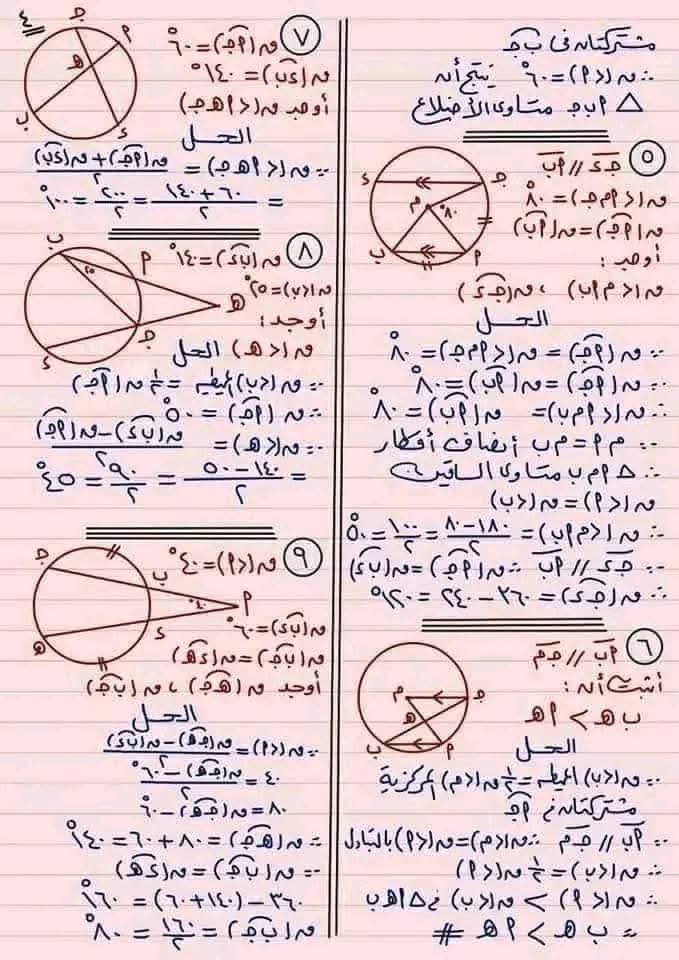 مشتركتان فى ب ج
∴ ق(<م) = ٦٠° ينتج أن
△ م ب ج متساوى الأضلاع
٥
ج د // م ب
ق(<م م ج) = ٨٠°
ق(م ج) = ق(م ب)
أوجد :
ق(<م م ب) ، ق(ج د)
الحل
∵ ق(م ج) = ق(<م م ج) = ٨٠°
∵ ق(م ج) = ق(م ب) = ٨٠°
∴ ق(<م م ب) = ق(م ب) = ٨٠°
∵ م م = م ب أنصاف أقطار
∴ △ م م ب متساوى الساقين
ق(<م) = ق(<ب)
∴ ق(<م م ب) = (١٨٠ − ٨٠)/٢ = ١٠٠/٢ = ٥٠°
∵ ج د // م ب ∴ ق(م ج) = ق(ب د)
∴ ق(ج د) = ٣٦٠ − ٢٤٠ = ١٢٠°
٦
م ب // ج م
أثبت أن :
ب ه > م ه
الحل
∵ ق(<ب) المحيطية = ١/٢ ق(<م) المركزية
مشتركتان فى م ج
∵ م ب // ج م ∴ ق(<م) = ق(<م) بالتبادل
∴ ق(<ب) = ١/٢ ق(<م)
∴ ق(<م) > ق(<ب) فى △ م ه ب
∴ ب ه > م ه #
٤
٧
ق(م ج) = ٦٠°
ق(د ب) = ١٤٠°
أوجد ق(<م ه ج)
الحل
∵ ق(<م ه ج) = (ق(م ج) + ق(د ب))/٢
= (٦٠ + ١٤٠)/٢ = ٢٠٠/٢ = ١٠٠°
٨
ق(ب د) = ١٤٠°
ق(<ب) = ٢٥°
أوجد :
ق(<ه)
الحل
∵ ق(<ب) المحيطية = ١/٢ ق(م ج)
∴ ق(م ج) = ٥٠°
∵ ق(<ه) = (ق(ب د) − ق(م ج))/٢
= (١٤٠ − ٥٠)/٢ = ٩٠/٢ = ٤٥°
٩
ق(<م) = ٤٠°
ق(ب د) = ٦٠°
ق(ب ج) = ق(د ه)
أوجد ق(ه ج) ، ق(ب ج)
الحل
∵ ق(<م) = (ق(ج ه) − ق(ب د))/٢
٤٠ = (ق(ج ه) − ٦٠)/٢
٨٠ = ق(ج ه) − ٦٠
∴ ق(ه ج) = ٨٠ + ٦٠ = ١٤٠°
∵ ق(ب ج) = ق(د ه)
٣٦٠ − (١٤٠ + ٦٠) = ١٦٠°
ق(ب ج) = ١٦٠/٢ = ٨٠°